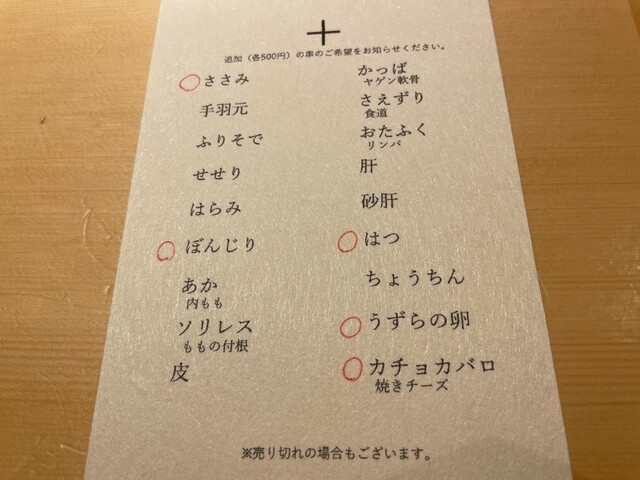 追加（各500円）の串のご希望をお知らせください。
ささみ
手羽元
ふりそで
せせり
はらみ
ぼんじり
あか
内もも
ソリレス
ももの付根
皮
かっぱ
ヤゲン軟骨
さえずり
食道
おたふく
リンパ
肝
砂肝
はつ
ちょうちん
うずらの卵
カチョカバロ
焼きチーズ
※売り切れの場合もございます。